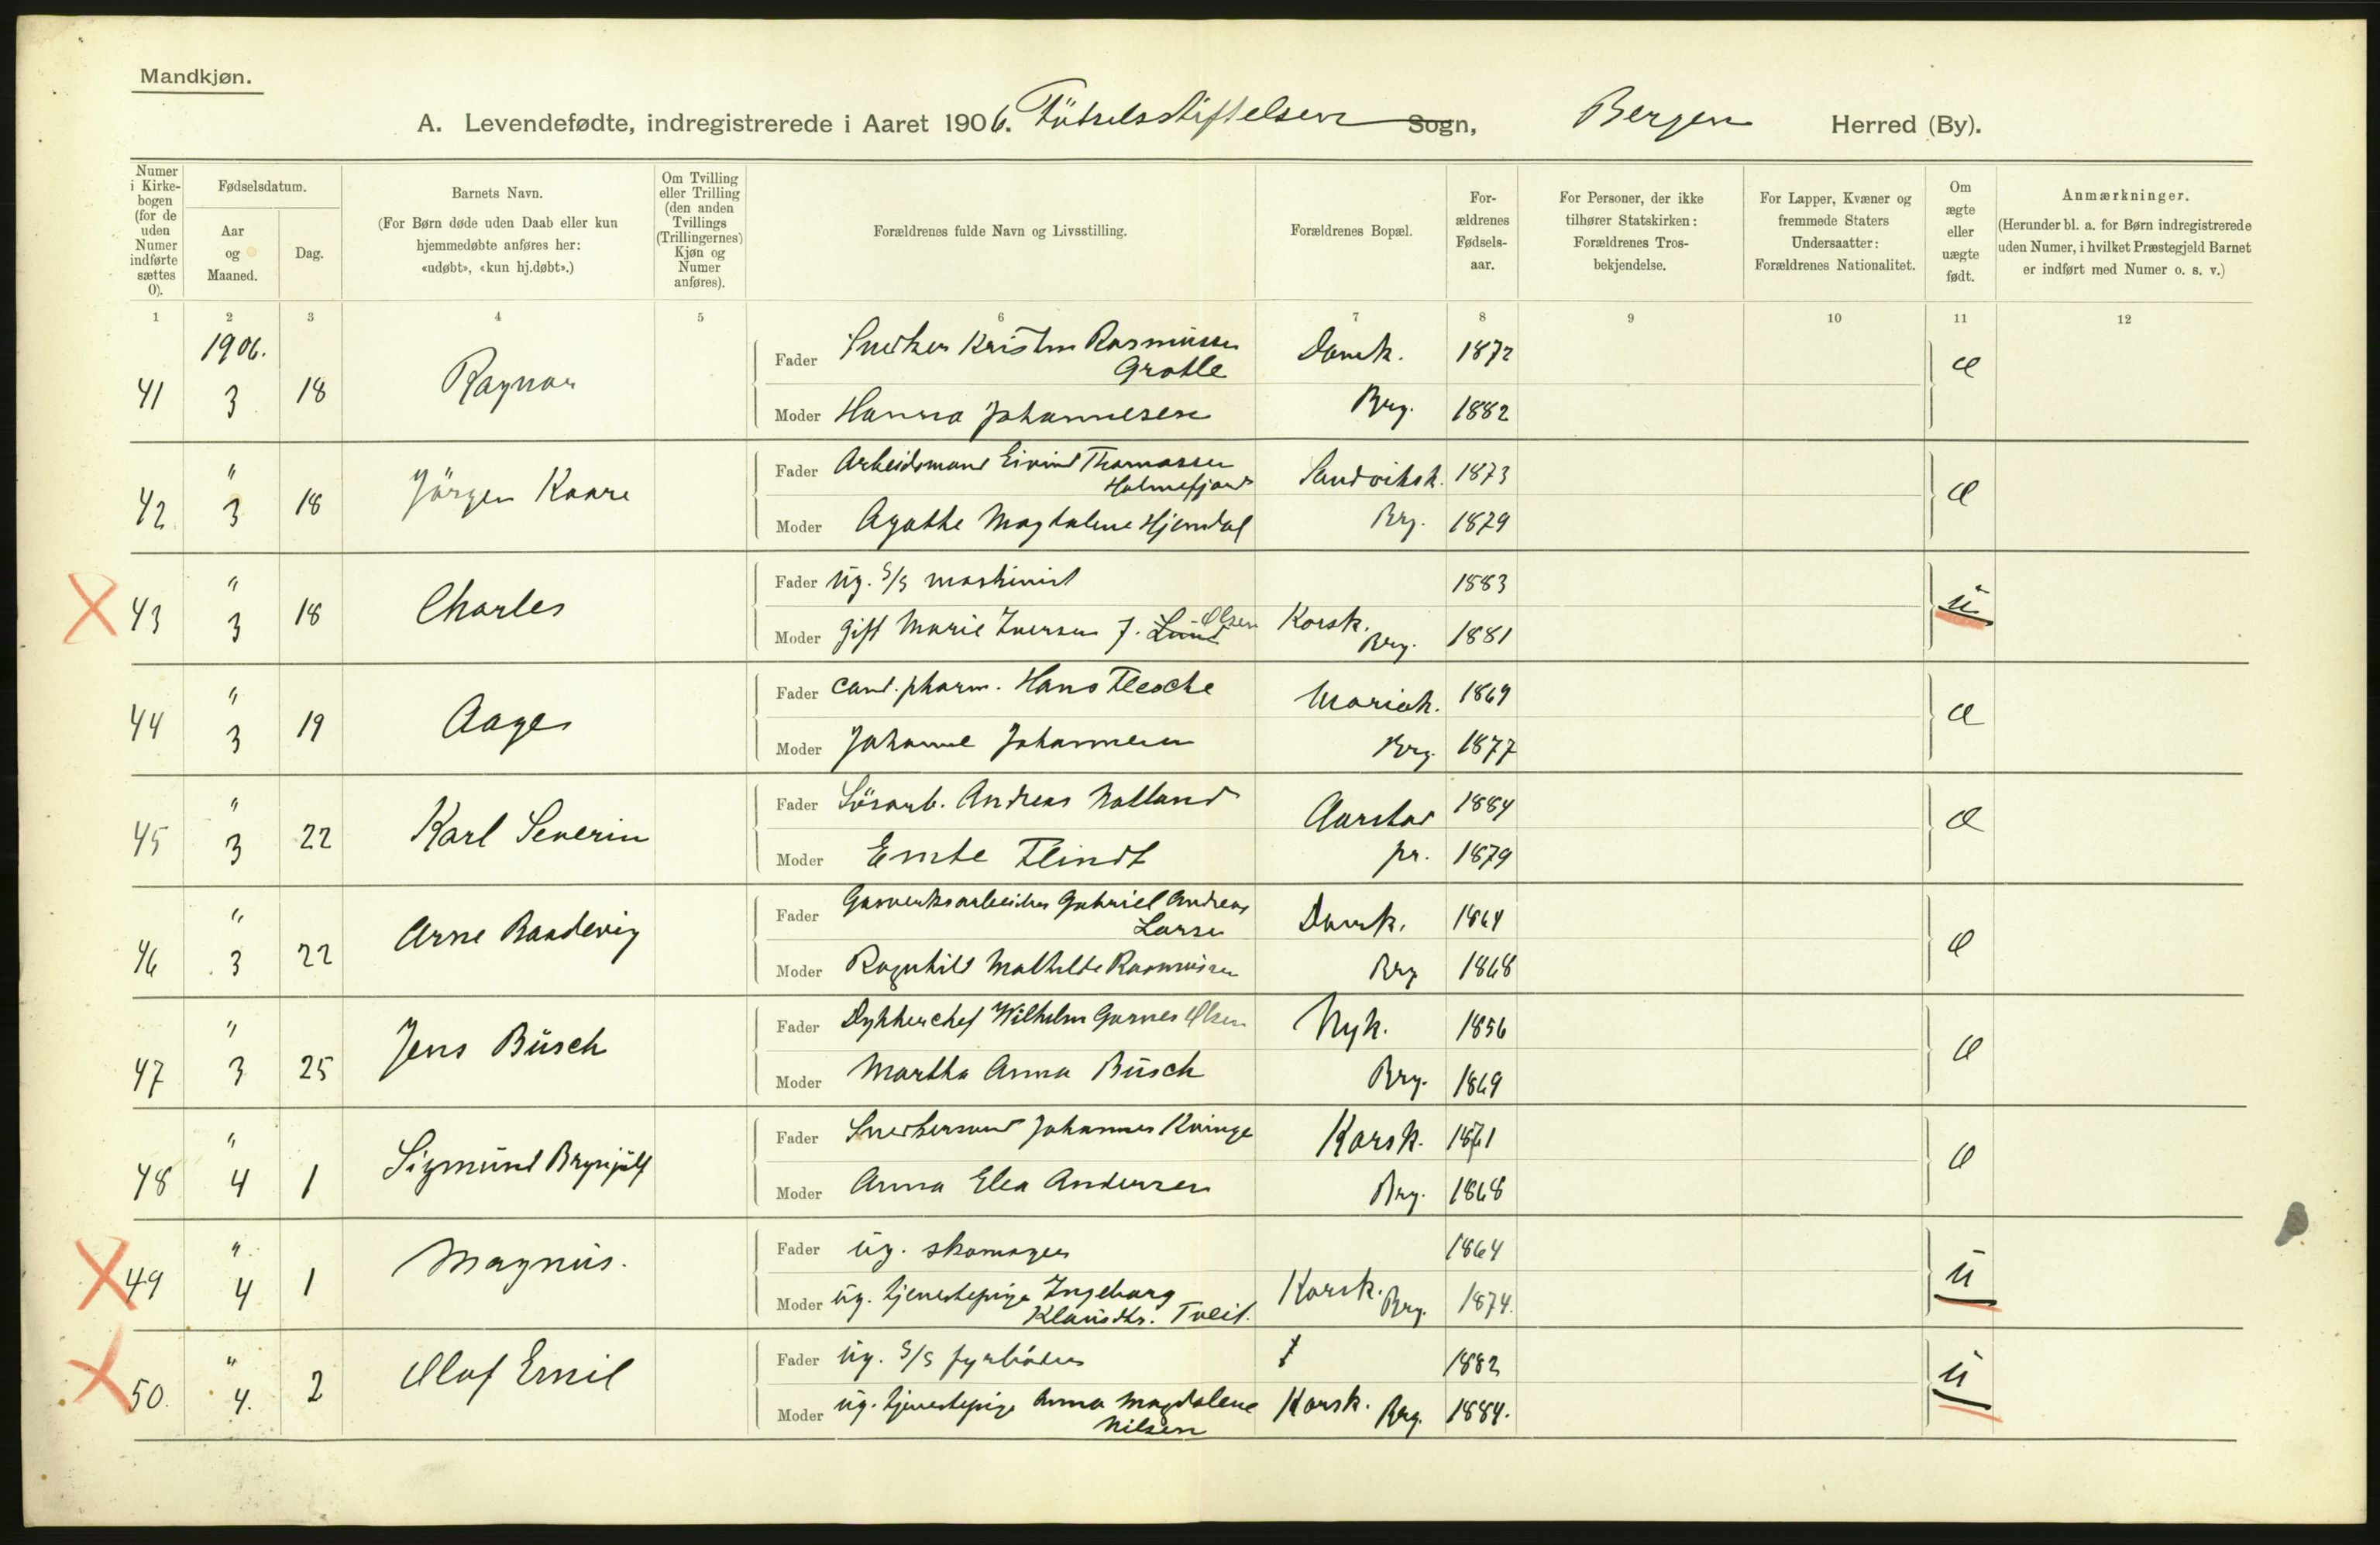 Mandkjøn.
A. Levendefødte, indregistrerede i Aaret 1906. Födselsstiftelsen Sogn, Bergen Herred (By).
Numer i Kirkebogen (for de uden Numer indførte sættes 0).
Fødselsdatum.
Aar og Maaned.
Dag.
Barnets Navn.
(For Børn døde uden Daab eller kun hjemmedøbte anføres her: «udøbt», «kun hj.døbt».)
Om Tvilling eller Trilling (den anden Tvillings (Trillingernes) Kjøn og Numer anføres).
Forældrenes fulde Navn og Livsstilling.
Forældrenes Bopæl.
Forældrenes Fødselsaar.
For Personer, der ikke tilhører Statskirken: Forældrenes Trosbekjendelse.
For Lapper, Kvæner og fremmede Staters Undersaatter: Forældrenes Nationalitet.
Om ægte eller uægte født.
Anmærkninger.
(Herunder bl. a. for Børn indregistrerede uden Numer, i hvilket Præstegjeld Barnet er indført med Numer o. s. v.)
1 2 3 4 5 6 7 8 9 10 11 12
1906.
41 3 18 Ragnar Fader Snedker Kristen Rasmussen Grotle Domk. 1872 æ
Moder Hanna Johannesen Brg. 1882
42 " 3 18 Jörgen Kaare Fader Arbeidsmand Eivind Thomassen Holmefjord Sandviksk. 1873 æ
Moder Agathe Magdalene Hjemdal Brg. 1879
43 " 3 18 Charles Fader üg. S/S maskinist 1883 ü
Moder gift Marie Iversen f. Lund Olsen Korsk. Brg. 1881
44 " 3 19 Aage Fader cand. pharm. Hans Flesche Mariak. 1869 æ
Moder Johanne Johannesen Brg. 1877
45 " 3 22 Karl Severin Fader Andreas Natland Aarstad 1884 æ
Moder Flindt pr. 1879
46 " 3 22 Arne Baadevig Fader Gasverksarbeider Gabriel Andreas Larsen Domk. 1864 æ
Moder Ragnhild Mathilde Rasmussen Brg 1868
47 " 3 25 Jens Büsch Fader Dykkerchef Wilhelm Garnes Olsen Nyk. 1856 æ
Moder Martha Anna Büsch Brg. 1869
48 " 4 1 Sigmünd Brynjülf Fader Snedkersvend Johannes Kvinge Korsk. 1871 æ
Moder Anna Elea Andersen Brg. 1868
49 " 4 1 Magnüs. Fader üg. skomager 1864 ü
Moder üg. tjenestepige Ingeborg Klausdtr. Tveit. Korsk. Brg. 1874.
50. " 4. 2 Olaf Emil Fader üg. S/S fyrböder 1882 ü
Moder üg. tjenestepige Anna Magdalene Nilsen Korsk. Brg. 1884.